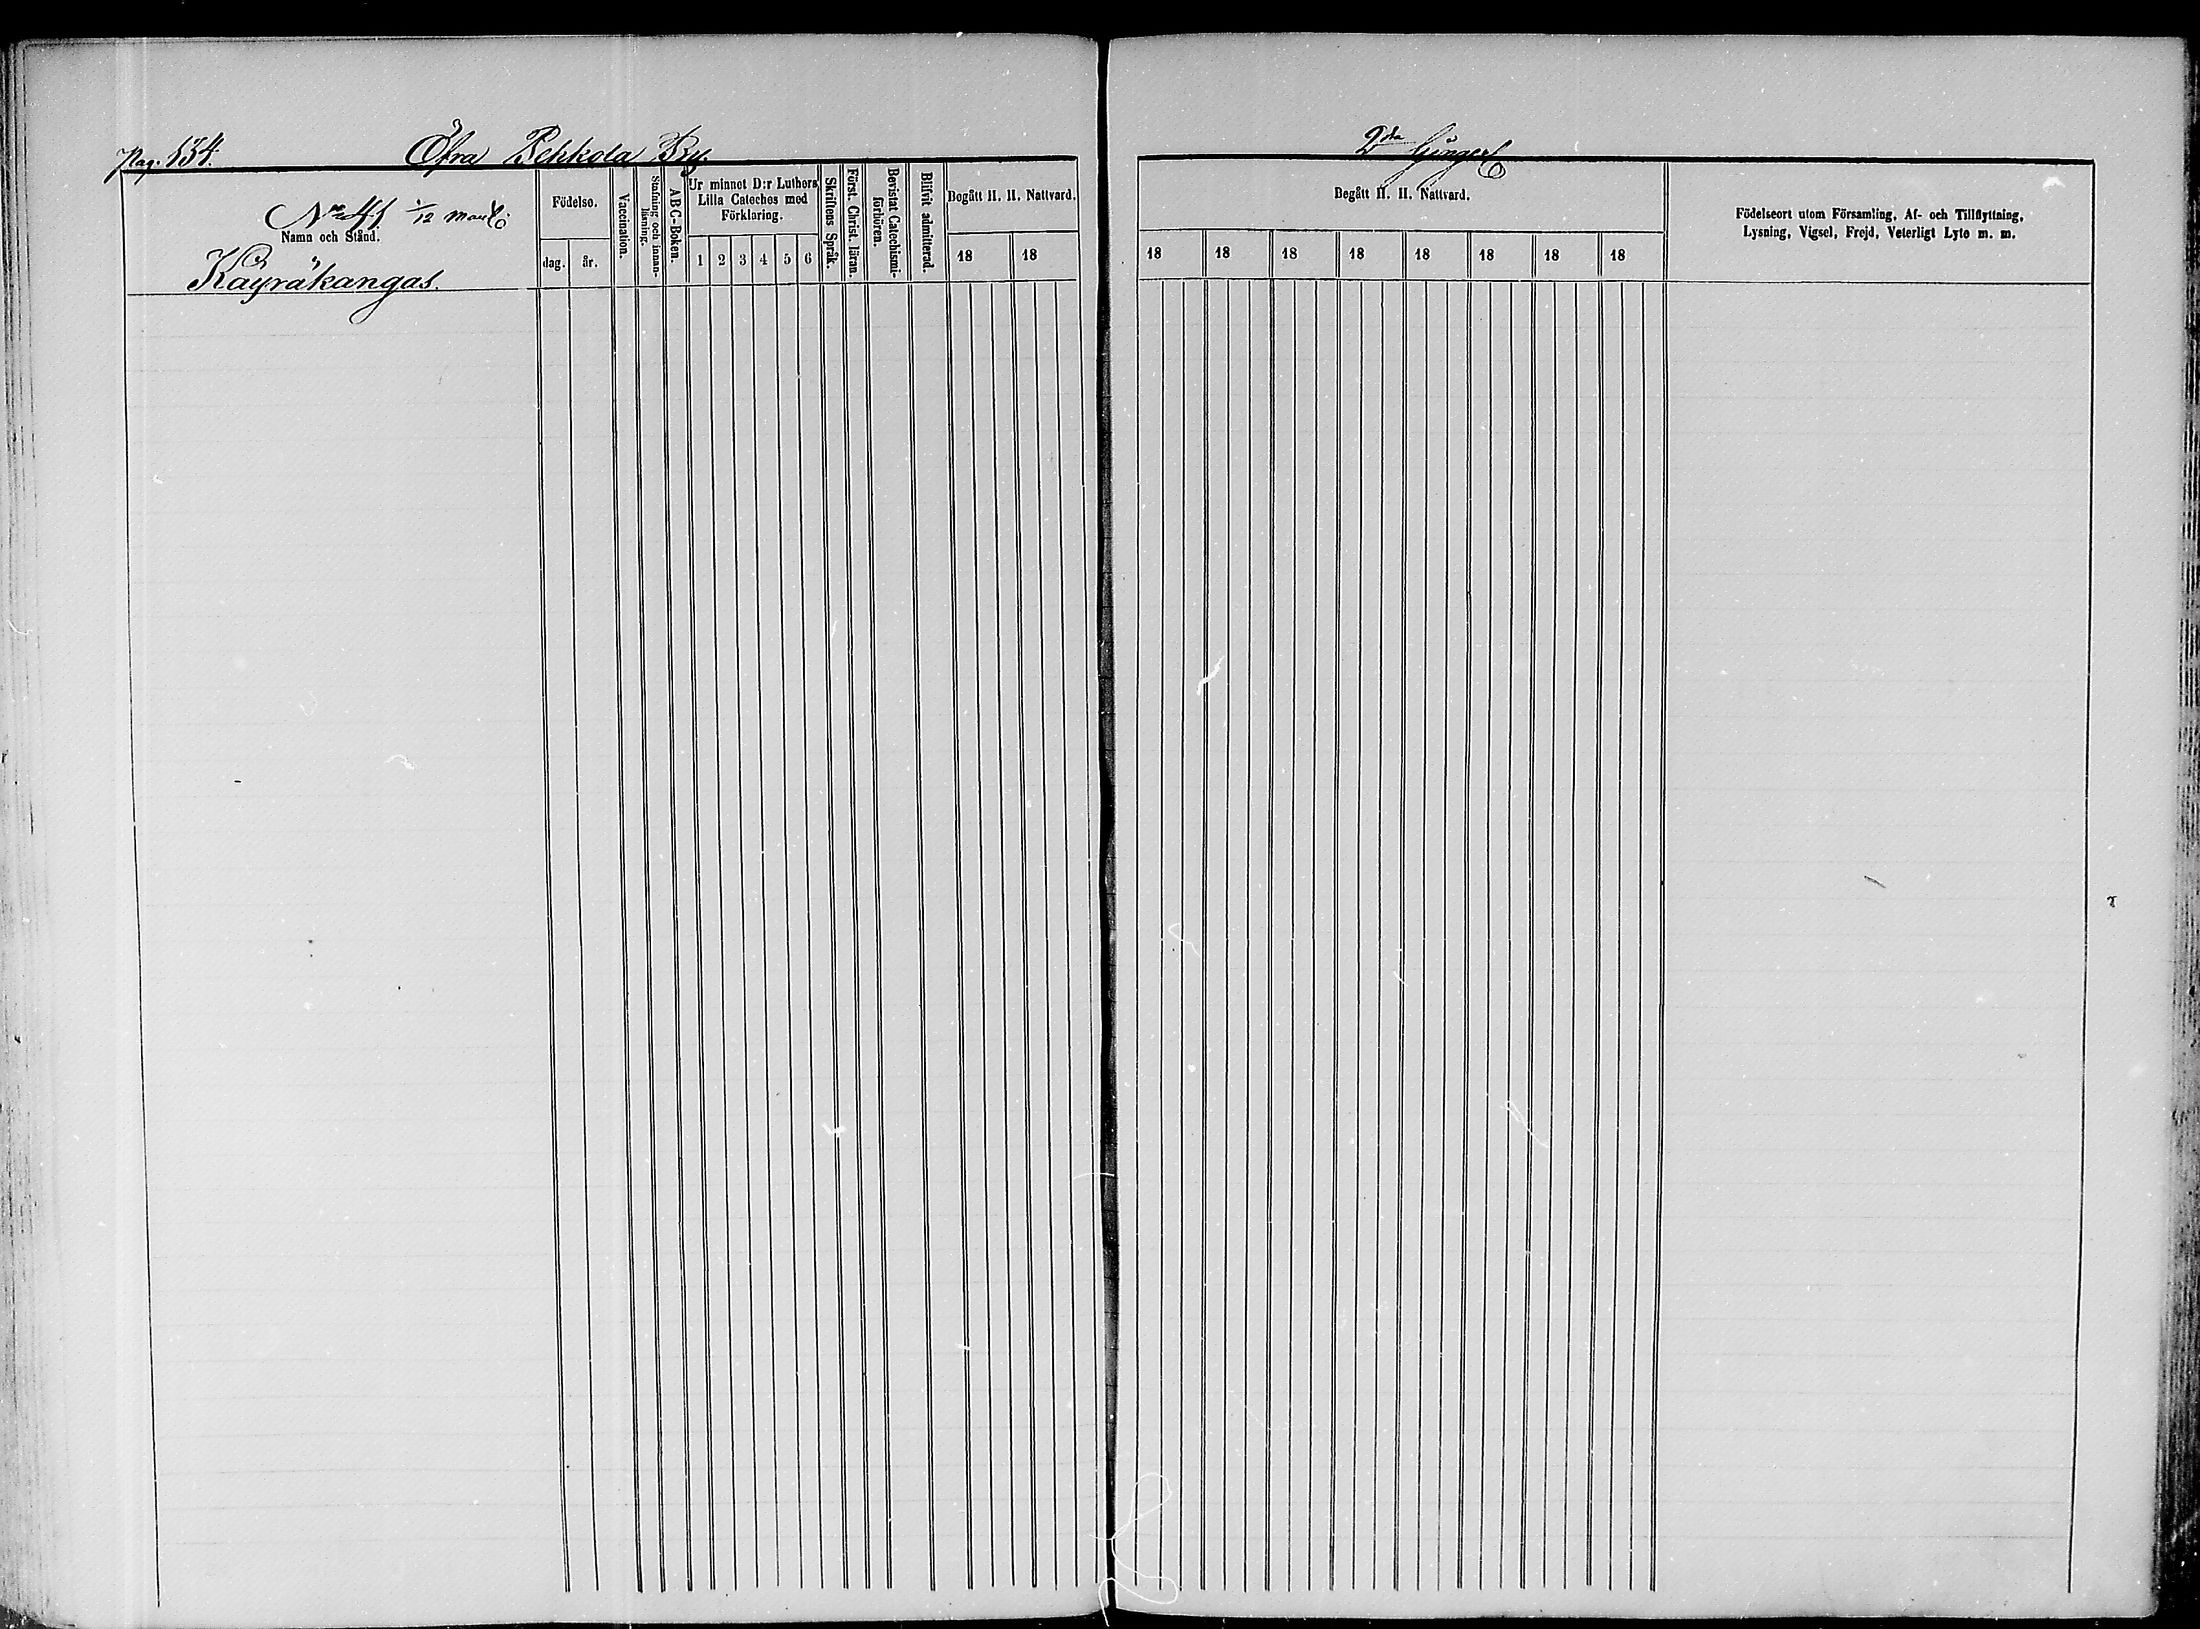 Pag. 154.
Öfra Pekkola By.
No 41 1/12 mantl:
Namn och Stånd.
Käyräkangas.
Födelse.
dag. år.
Vaccination.
Stafning och innanläsning.
ABC-Boken.
Ur minnet D:r Luthers
Lilla Cateches med
Förklaring.
1 2 3 4 5 6
Skriftens Språk.
Först. Christ. läran.
Bevistat Catechismi-
förhören.
Blifvit admitterad.
Begått H. H. Nattvard.
18 18
2dra
Begått H. H. Nattvard.
18 18 18 18 18 18 18 18
Födelseort utom Församling, Af- och Tillflyttning,
Lysning, Vigsel, Frejd, Veterligt Lyte m. m.